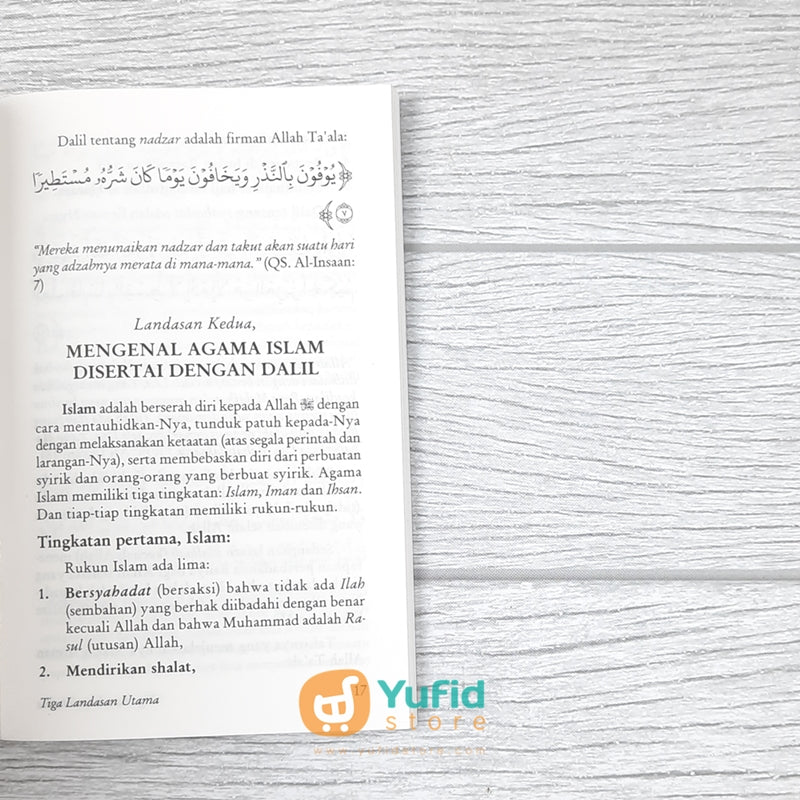 Dalil tentang nadzar adalah firman Allah Ta'ala:
﴿ يُوفُونَ بِٱلنَّذْرِ وَيَخَافُونَ يَوْمًا كَانَ شَرُّهُۥ مُسْتَطِيرًا
٧ ﴾
“Mereka menunaikan nadzar dan takut akan suatu hari
yang adzabnya merata di mana-mana.” (QS. Al-Insaan:
7)
Landasan Kedua,
MENGENAL AGAMA ISLAM
DISERTAI DENGAN DALIL
Islam adalah berserah diri kepada Allah ﷻ dengan
cara mentauhidkan-Nya, tunduk patuh kepada-Nya
dengan melaksanakan ketaatan (atas segala perintah dan
larangan-Nya), serta membebaskan diri dari perbuatan
syirik dan orang-orang yang berbuat syirik. Agama
Islam memiliki tiga tingkatan: Islam, Iman dan Ihsan.
Dan tiap-tiap tingkatan memiliki rukun-rukun.
Tingkatan pertama, Islam:
Rukun Islam ada lima:
1. Bersyahadat (bersaksi) bahwa tidak ada Ilah
(sembahan) yang berhak diibadahi dengan benar
kecuali Allah dan bahwa Muhammad adalah Ra-
sul (utusan) Allah,
2. Mendirikan shalat,
Tiga Landasan Utama
17
Yufid
store